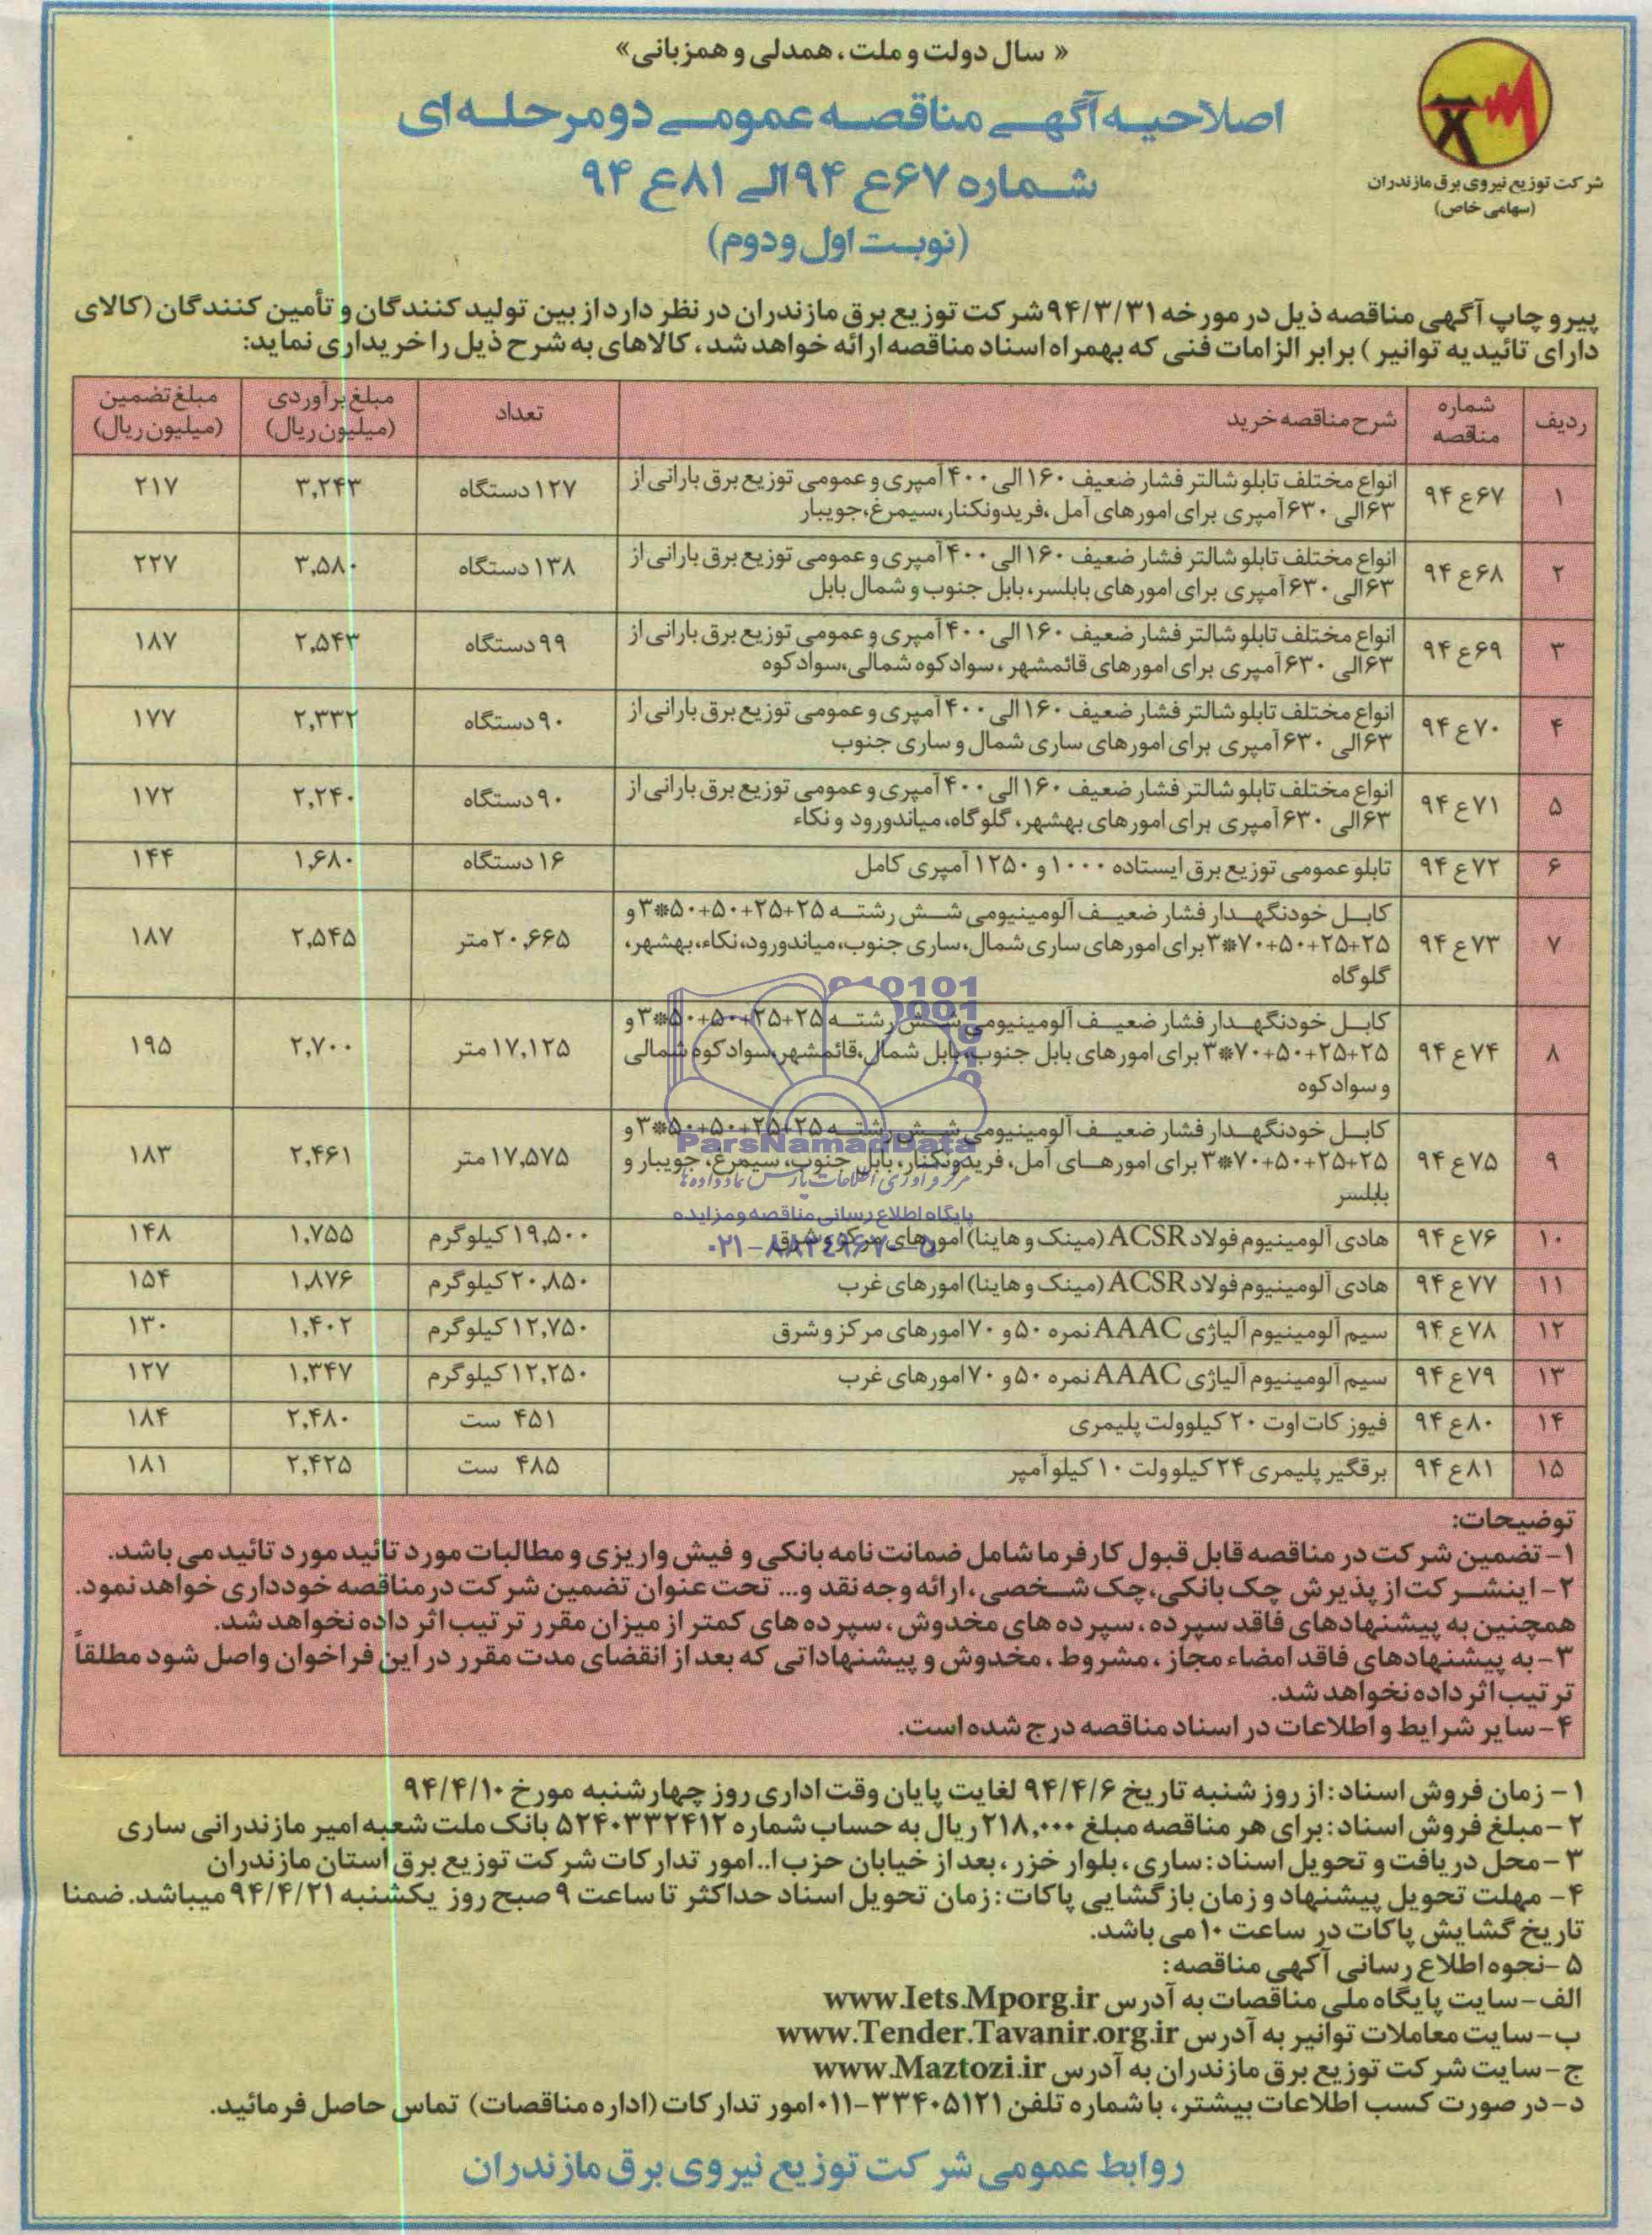 « سال دولت و ملت، همدلی و همزبانی»
اصلاحیه آگهی مناقصه عمومی دو مرحله ای
شماره ۶۷ع ۹۴ الی ۸۱ع ۹۴
(نوبت اول و دوم)
شرکت توزیع نیروی برق مازندران
(سهامی خاص)
پیرو چاپ آگهی مناقصه ذیل در مورخه ۹۴/۳/۳۱ شرکت توزیع برق مازندران در نظر دارد از بین تولید کنندگان و تأمین کنندگان (کالای
دارای تائیدیه توانیر) برابر الزامات فنی که بهمراه اسناد مناقصه ارائه خواهد شد، کالاهای به شرح ذیل را خریداری نماید:
ردیف | شماره مناقصه | شرح مناقصه خرید | تعداد | مبلغ برآوردی (میلیون ریال) | مبلغ تضمین (میلیون ریال)
۱ | ۶۷ع ۹۴ | انواع مختلف تابلو شالتر فشار ضعیف ۱۶۰ الی ۴۰۰ آمپری و عمومی توزیع برق بارانی از
۶۳ الی ۶۳۰ آمپری برای امورهای آمل، فریدونکنار، سیمرغ، جویبار | ۱۲۷ دستگاه | ۳,۲۴۳ | ۲۱۷
۲ | ۶۸ع ۹۴ | انواع مختلف تابلو شالتر فشار ضعیف ۱۶۰ الی ۴۰۰ آمپری و عمومی توزیع برق بارانی از
۶۳ الی ۶۳۰ آمپری برای امورهای بابلسر، بابل جنوب و شمال بابل | ۱۳۸ دستگاه | ۳,۵۸۰ | ۲۲۷
۳ | ۶۹ع ۹۴ | انواع مختلف تابلو شالتر فشار ضعیف ۱۶۰ الی ۴۰۰ آمپری و عمومی توزیع برق بارانی از
۶۳ الی ۶۳۰ آمپری برای امورهای قائمشهر، سواد کوه شمالی، سواد کوه | ۹۹ دستگاه | ۲,۵۴۳ | ۱۸۷
۴ | ۷۰ع ۹۴ | انواع مختلف تابلو شالتر فشار ضعیف ۱۶۰ الی ۴۰۰ آمپری و عمومی توزیع برق بارانی از
۶۳ الی ۶۳۰ آمپری برای امورهای ساری شمال و ساری جنوب | ۹۰ دستگاه | ۲,۳۳۲ | ۱۷۷
۵ | ۷۱ع ۹۴ | انواع مختلف تابلو شالتر فشار ضعیف ۱۶۰ الی ۴۰۰ آمپری و عمومی توزیع برق بارانی از
۶۳ الی ۶۳۰ آمپری برای امورهای بهشهر، گلوگاه، میاندورود و نکاء | ۹۰ دستگاه | ۲,۲۴۰ | ۱۷۲
۶ | ۷۲ع ۹۴ | تابلو عمومی توزیع برق ایستاده ۱۰۰۰ و ۱۲۵۰ آمپری کامل | ۱۶ دستگاه | ۱,۶۸۰ | ۱۴۴
۷ | ۷۳ع ۹۴ | کابل خودنگهدار فشار ضعیف آلومینیومی شش رشته ۲۵+۲۵+۵۰+۵۰*۳ و
۲۵+۲۵+۵۰+۷۰*۳ برای امورهای ساری شمال، ساری جنوب، میاندورود، نکاء، بهشهر،
گلوگاه | ۲۰,۶۶۵ متر | ۲,۵۴۵ | ۱۸۷
۸ | ۷۴ع ۹۴ | کابل خودنگهدار فشار ضعیف آلومینیومی شش رشته ۲۵+۲۵+۵۰+۵۰*۳ و
۲۵+۲۵+۵۰+۷۰*۳ برای امورهای بابل جنوب، بابل شمال، قائمشهر، سواد کوه شمالی
و سواد کوه | ۱۷,۱۲۵ متر | ۲,۷۰۰ | ۱۹۵
۹ | ۷۵ع ۹۴ | کابل خودنگهدار فشار ضعیف آلومینیومی شش رشته ۲۵+۲۵+۵۰+۵۰*۳ و
۲۵+۲۵+۵۰+۷۰*۳ برای امورهای آمل، فریدونکنار، بابل جنوب، سیمرغ، جویبار و
بابلسر | ۱۷,۵۷۵ متر | ۲,۴۶۱ | ۱۸۳
۱۰ | ۷۶ع ۹۴ | هادی آلومینیوم فولاد ACSR (مینک و هاینا) امورهای مرکز و شرق | ۱۹,۵۰۰ کیلوگرم | ۱,۷۵۵ | ۱۴۸
۱۱ | ۷۷ع ۹۴ | هادی آلومینیوم فولاد ACSR (مینک و هاینا) امورهای غرب | ۲۰,۸۵۰ کیلوگرم | ۱,۸۷۶ | ۱۵۴
۱۲ | ۷۸ع ۹۴ | سیم آلومینیوم آلیاژی AAAC نمره ۵۰ و ۷۰ امورهای مرکز و شرق | ۱۲,۷۵۰ کیلوگرم | ۱,۴۰۲ | ۱۳۰
۱۳ | ۷۹ع ۹۴ | سیم آلومینیوم آلیاژی AAAC نمره ۵۰ و ۷۰ امورهای غرب | ۱۲,۲۵۰ کیلوگرم | ۱,۳۴۷ | ۱۲۷
۱۴ | ۸۰ع ۹۴ | فیوز کات اوت ۲۰ کیلوولت پلیمری | ۴۵۱ ست | ۲,۴۸۰ | ۱۸۴
۱۵ | ۸۱ع ۹۴ | برقگیر پلیمری ۲۴ کیلوولت ۱۰ کیلو آمپر | ۴۸۵ ست | ۲,۴۲۵ | ۱۸۱
ParsNamadData
مرکز فرآوری اطلاعات پارس نماد داده ها
پایگاه اطلاع رسانی مناقصه و مزایده
۰۲۱-۸۸۳۴۹۶۷۰-۵
توضیحات:
۱- تضمین شرکت در مناقصه قابل قبول کارفرما شامل ضمانت نامه بانکی و فیش واریزی و مطالبات مورد تائید مورد تائید می باشد.
۲- اینشرکت از پذیرش چک بانکی، چک شخصی، ارائه وجه نقد و... تحت عنوان تضمین شرکت در مناقصه خودداری خواهد نمود.
همچنین به پیشنهادهای فاقد سپرده، سپرده های مخدوش، سپرده های کمتر از میزان مقرر ترتیب اثر داده نخواهد شد.
۳- به پیشنهادهای فاقد امضاء مجاز، مشروط، مخدوش و پیشنهاداتی که بعد از انقضای مدت مقرر در این فراخوان واصل شود مطلقاً
ترتیب اثر داده نخواهد شد.
۴- سایر شرایط و اطلاعات در اسناد مناقصه درج شده است.
۱- زمان فروش اسناد: از روز شنبه تاریخ ۹۴/۴/۶ لغایت پایان وقت اداری روز چهارشنبه مورخ ۹۴/۴/۱۰
۲- مبلغ فروش اسناد: برای هر مناقصه مبلغ ۲۱۸,۰۰۰ ریال به حساب شماره ۵۲۴۰۳۳۲۴۱۲ بانک ملت شعبه امیر مازندرانی ساری
۳- محل دریافت و تحویل اسناد: ساری، بلوار خزر، بعد از خیابان حزب ا.. امور تدارکات شرکت توزیع برق استان مازندران
۴- مهلت تحویل پیشنهاد و زمان بازگشایی پاکات: زمان تحویل اسناد حداکثر تا ساعت ۹ صبح روز یکشنبه ۹۴/۴/۲۱ میباشد. ضمنا
تاریخ گشایش پاکات در ساعت ۱۰ می باشد.
۵- نحوه اطلاع رسانی آگهی مناقصه:
الف- سایت پایگاه ملی مناقصات به آدرس www.Iets.Mporg.ir
ب- سایت معاملات توانیر به آدرس www.Tender.Tavanir.org.ir
ج- سایت شرکت توزیع برق مازندران به آدرس www.Maztozi.ir
د- در صورت کسب اطلاعات بیشتر، با شماره تلفن ۳۳۴۰۵۱۲۱-۰۱۱ امور تدارکات (اداره مناقصات) تماس حاصل فرمائید.
روابط عمومی شرکت توزیع نیروی برق مازندران